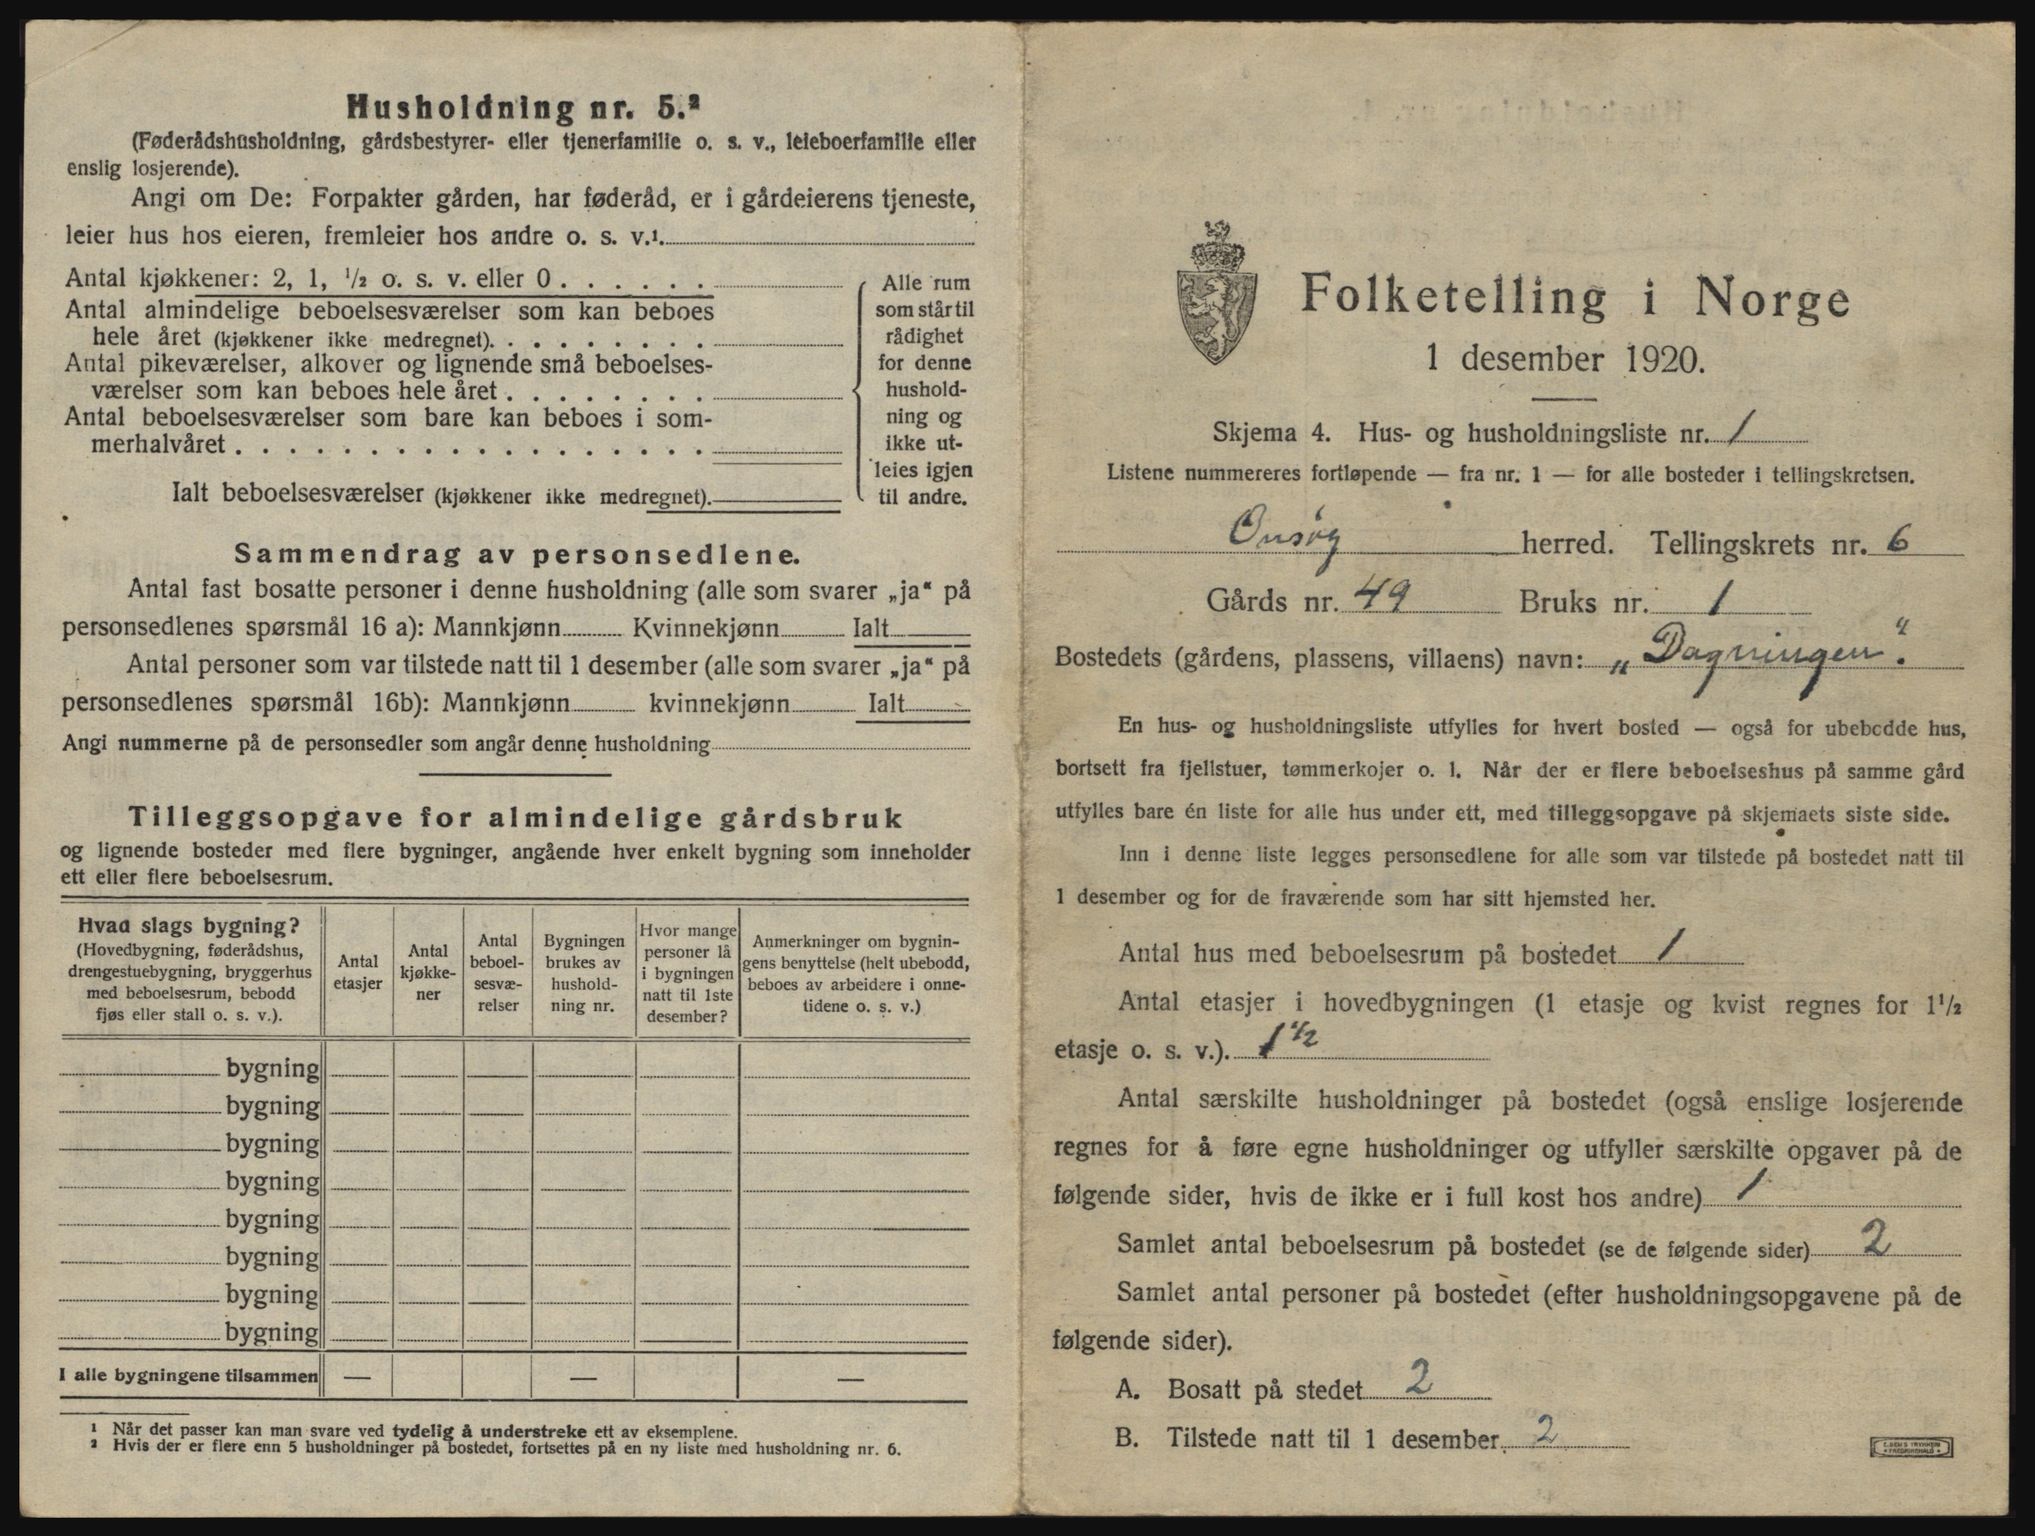 Husholdning nr. 5.²
(Føderådshusholdning, gårdsbestyrer- eller tjenerfamilie o. s. v., leieboerfamilie eller
enslig losjerende).
Angi om De: Forpakter gården, har føderåd, er i gårdeierens tjeneste,
leier hus hos eieren, fremleier hos andre o. s. v.¹
Antal kjøkkener: 2, 1, ½ o. s. v. eller 0 . . . . . .
Antal almindelige beboelsesværelser som kan beboes
hele året (kjøkkener ikke medregnet). . . . . . . . .
Antal pikeværelser, alkover og lignende små beboelses-
værelser som kan beboes hele året . . . . . . . .
Antal beboelsesværelser som bare kan beboes i som-
merhalvåret . . . . . . . . . . . . . . . . . .
Ialt beboelsesværelser (kjøkkener ikke medregnet).
Alle rum
som står til
rådighet
for denne
hushold-
ning og
ikke ut-
leies igjen
til andre.
Sammendrag av personsedlene.
Antal fast bosatte personer i denne husholdning (alle som svarer „ja“ på
personsedlenes spørsmål 16 a): Mannkjønn Kvinnekjønn Ialt
Antal personer som var tilstede natt til 1 desember (alle som svarer „ja“ på
personsedlenes spørsmål 16b): Mannkjønn kvinnekjønn Ialt
Angi nummerne på de personsedler som angår denne husholdning
Tilleggsopgave for almindelige gårdsbruk
og lignende bosteder med flere bygninger, angående hver enkelt bygning som inneholder
ett eller flere beboelsesrum.
Hvad slags bygning?
(Hovedbygning, føderådshus,
drengestuebygning, bryggerhus
med beboelsesrum, bebodd
fjøs eller stall o. s. v.).
Antal
etasjer
Antal
kjøkke-
ner
Antal
beboel-
sesvæ-
relser
Bygningen
brukes av
hushold-
ning nr.
Hvor mange
personer lå
i bygningen
natt til 1ste
desember?
Anmerkninger om bygnin-
gens benyttelse (helt ubebodd,
beboes av arbeidere i onne-
tidene o. s. v.)
bygning
bygning
bygning
bygning
bygning
bygning
bygning
bygning
I alle bygningene tilsammen — — —
¹ Når det passer kan man svare ved tydelig å understreke ett av eksemplene.
² Hvis der er flere enn 5 husholdninger på bostedet, fortsettes på en ny liste med husholdning nr. 6.
Folketelling i Norge
1 desember 1920.
Skjema 4. Hus- og husholdningsliste nr. 1
Listene nummereres fortløpende — fra nr. 1 — for alle bosteder i tellingskretsen.
Onsøy herred. Tellingskrets nr. 6
Gårds nr. 49 Bruks nr. 1
Bostedets (gårdens, plassens, villaens) navn: „Dagningen“.
En hus- og husholdningsliste utfylles for hvert bosted — også for ubebodde hus,
bortsett fra fjellstuer, tømmerkojer o. l. Når der er flere beboelseshus på samme gård
utfylles bare én liste for alle hus under ett, med tilleggsopgave på skjemaets siste side.
Inn i denne liste legges personsedlene for alle som var tilstede på bostedet natt til
1 desember og for de fraværende som har sitt hjemsted her.
Antal hus med beboelsesrum på bostedet 1
Antal etasjer i hovedbygningen (1 etasje og kvist regnes for 1½
etasje o. s. v.). 1½
Antal særskilte husholdninger på bostedet (også enslige losjerende
regnes for å føre egne husholdninger og utfyller særskilte opgaver på de
følgende sider, hvis de ikke er i full kost hos andre) 1
Samlet antal beboelsesrum på bostedet (se de følgende sider) 2
Samlet antal personer på bostedet (efter husholdningsopgavene på de
følgende sider).
A. Bosatt på stedet 2
B. Tilstede natt til 1 desember 2